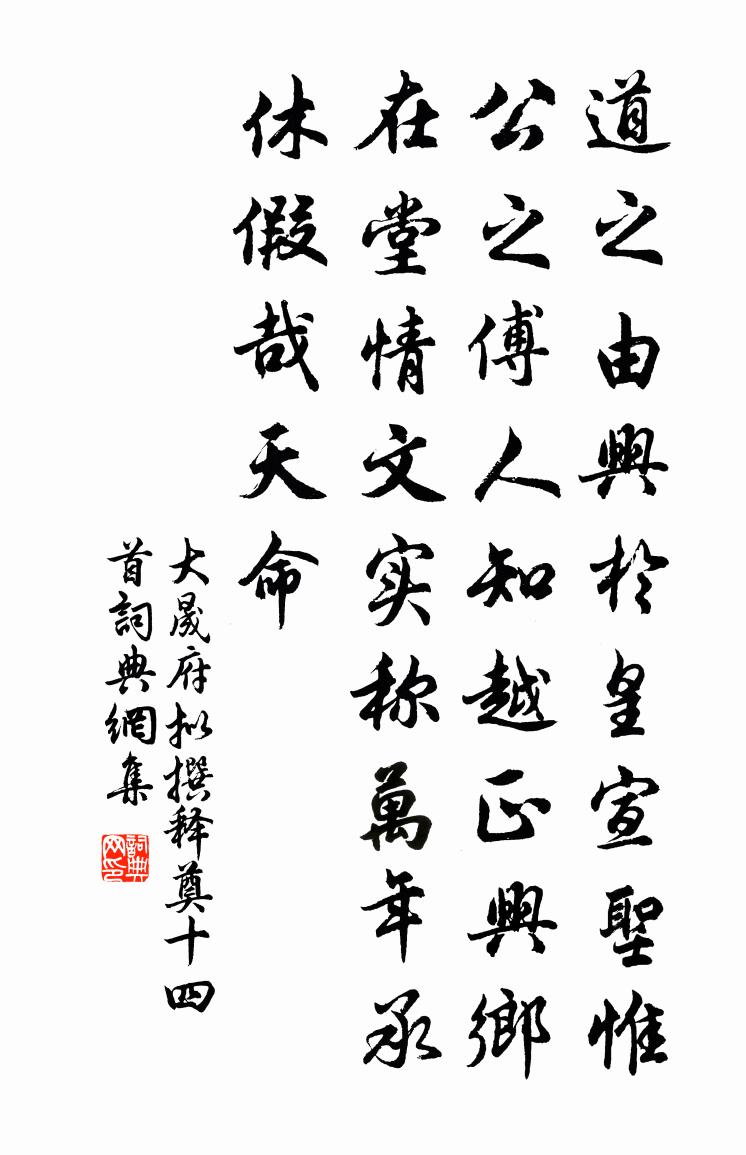 道之由興於皇宣聖惟
公之傅人知越正興鄉
在堂情文实称萬年承
休假哉天命
大晟府拟撰释奠十四
首詞典網集
詞典
网印